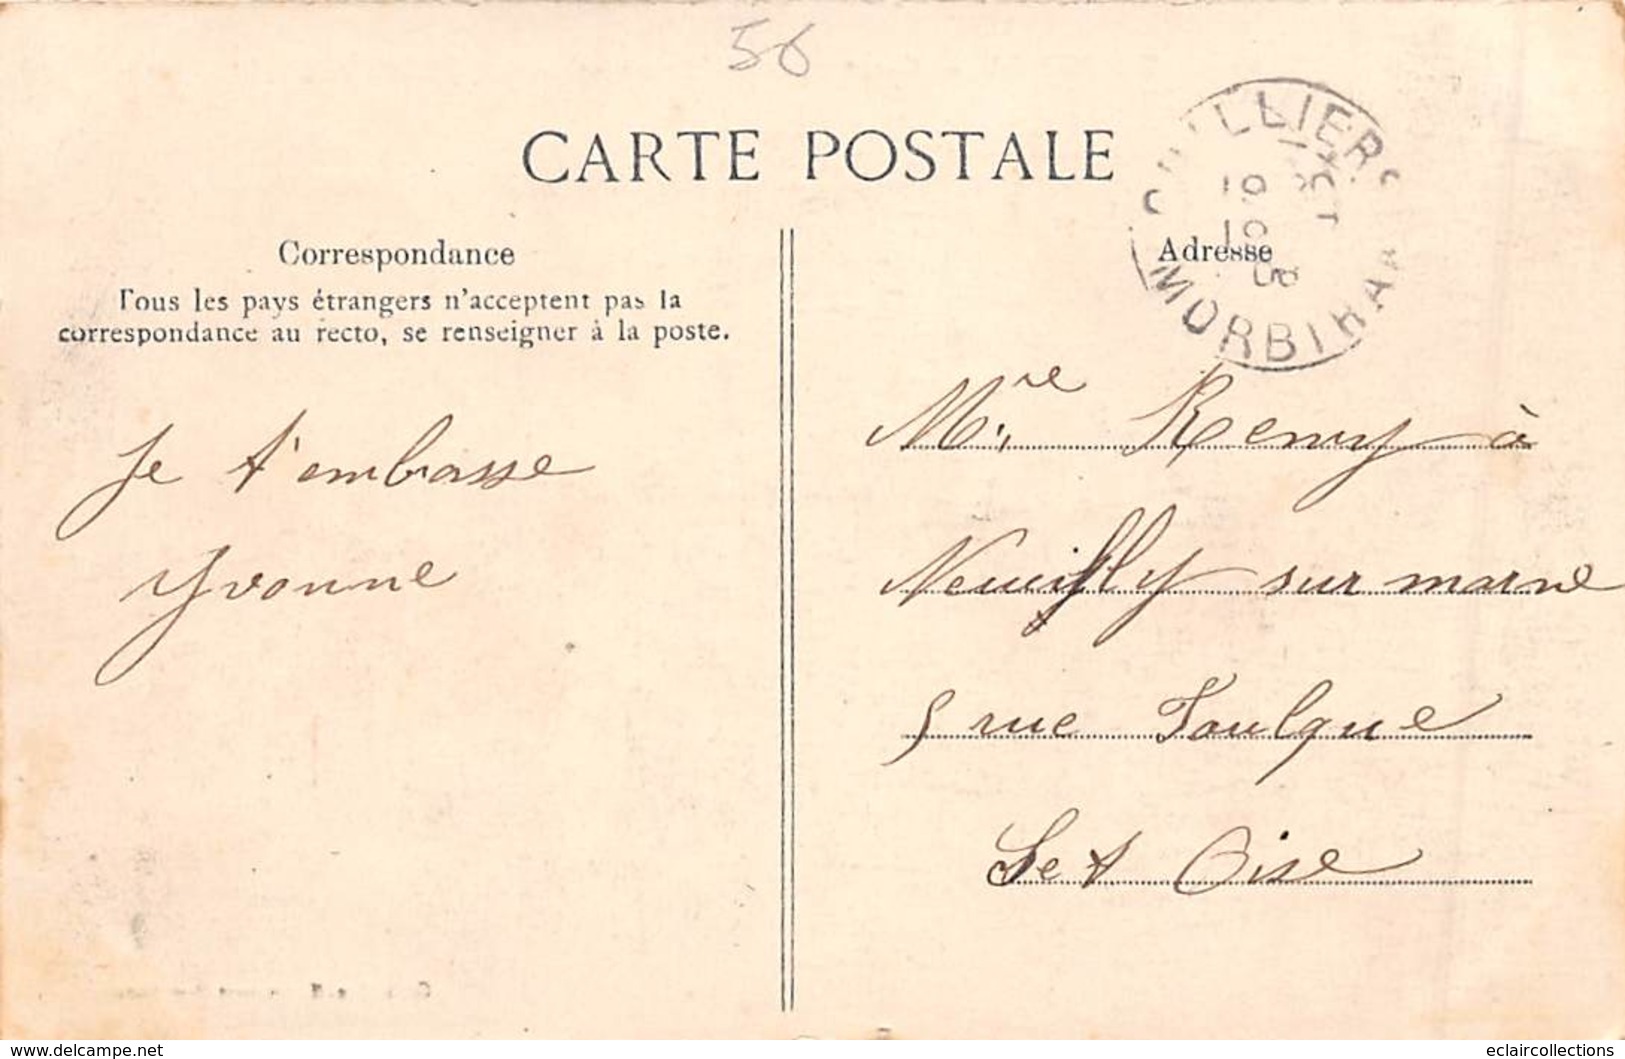 56
CARTE POSTALE
GUILLIERS
MORBIHAN
Correspondance
Tous les pays étrangers n'acceptent pas la
correspondance au recto, se renseigner à la poste.
Adresse
Je t'embrasse
Yvonne
Mre Remy à
Neuilly sur marne
5 rue Foulque
S et Oise
www.delcampe.net
eclaircollections